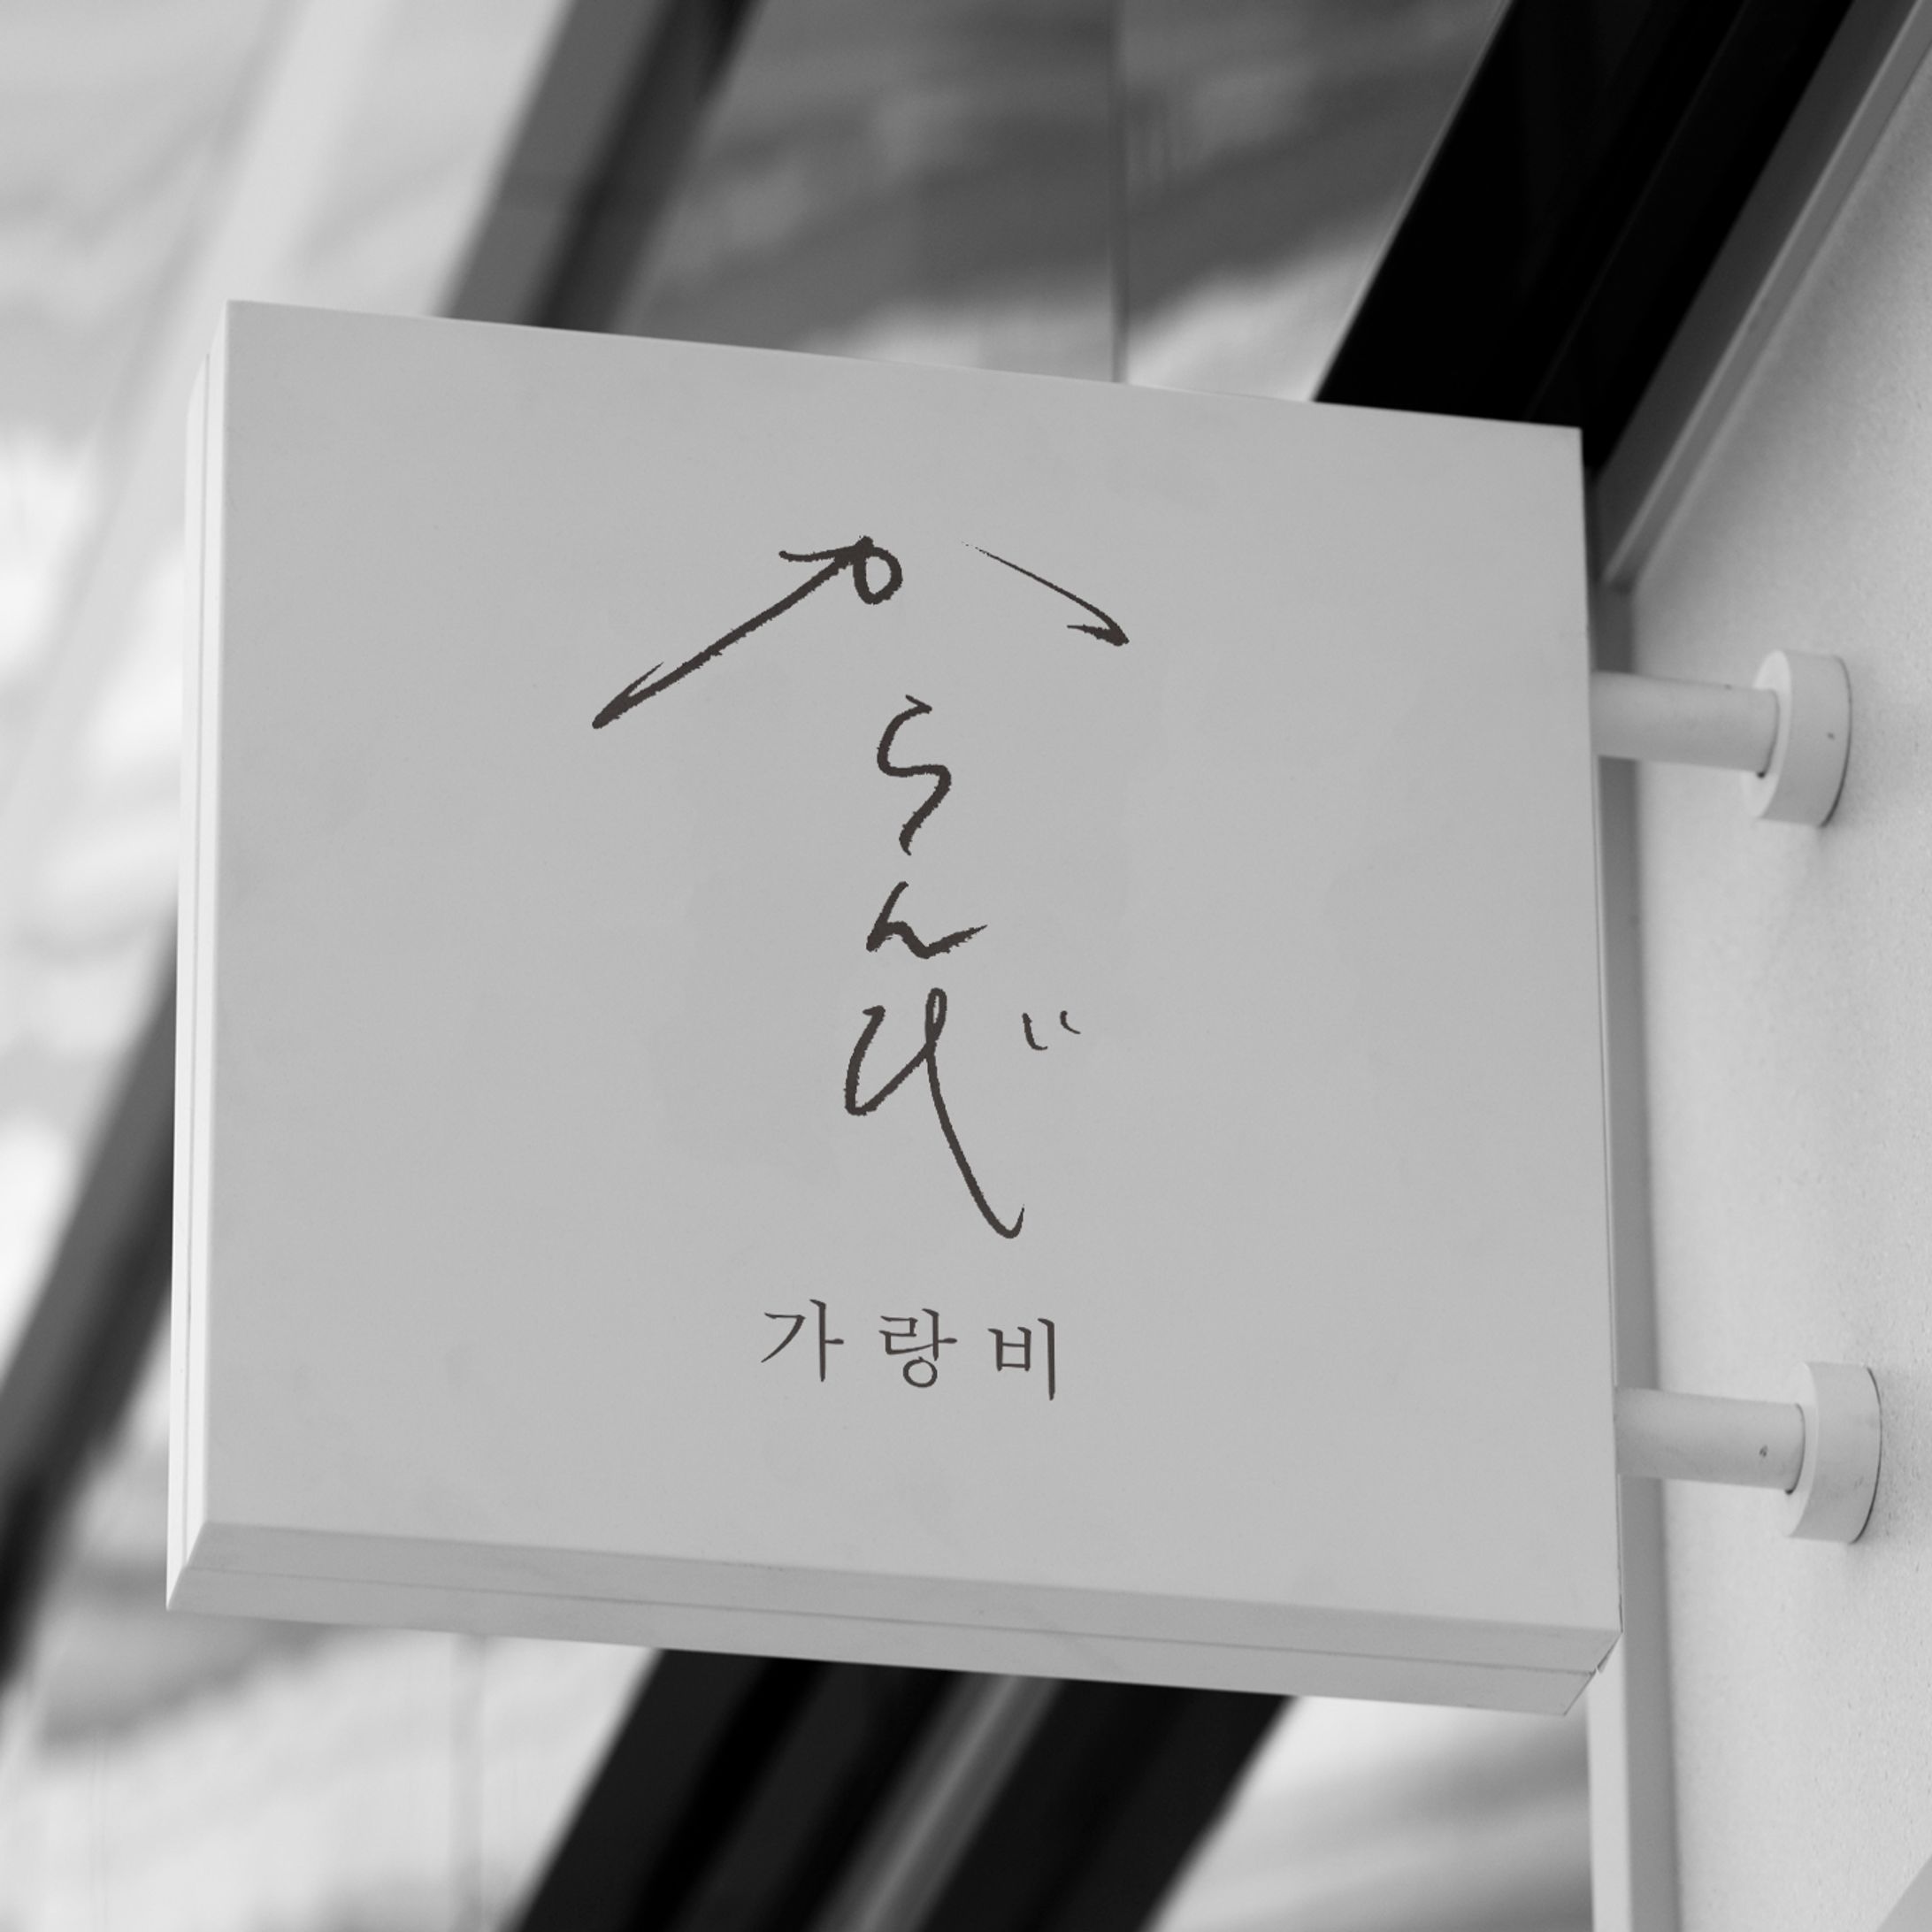 からんび
가랑비